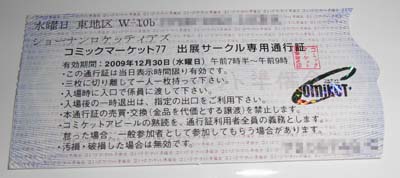 水曜日 東地区 W-10b
ショーナンロケッティアズ
コミックマーケット77 出展サークル専用通行証
有効期間：2009年12月30日（水曜日）午前7時半～午前9時
・この通行証は当日表示時間限り有効です。
・三枚に切り離して一人一枚持って下さい。
・入場時に入口で係員に渡して下さい。
・入場後の一時退出は、指定の出口をご利用下さい。
・本通行証の売買・交換（金品を代価とする譲渡）を禁止します。
・コミケットアピールの熟読を、通行証利用者全員の義務とします。
怠った場合、一般参加者として参加してもらう場合があります。
・汚損・破損した場合は無効です。
Comiket